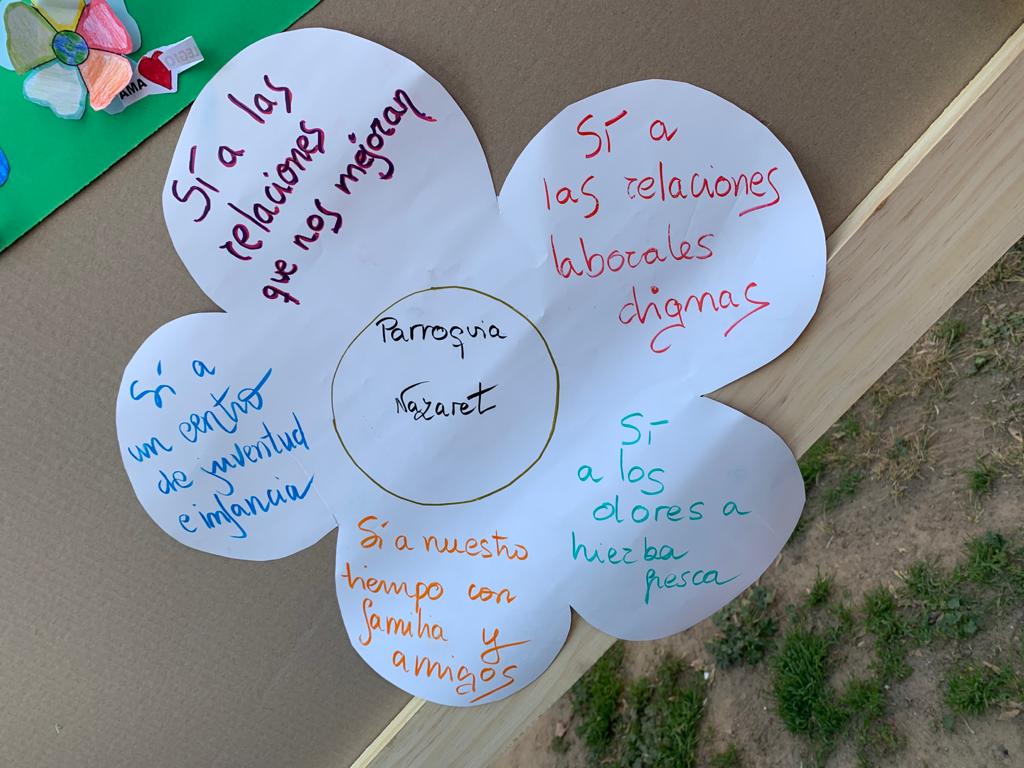 AMA
EGIO
Sí a las
relaciones
que nos mejoran
Sí a
las relaciones
laborales
dignas
Parroquia
Nazaret
Sí a
un centro
de juventud
e infancia
Sí
a los
olores a
hierba
fresca
Sí a nuestro
tiempo con
familia y
amigos